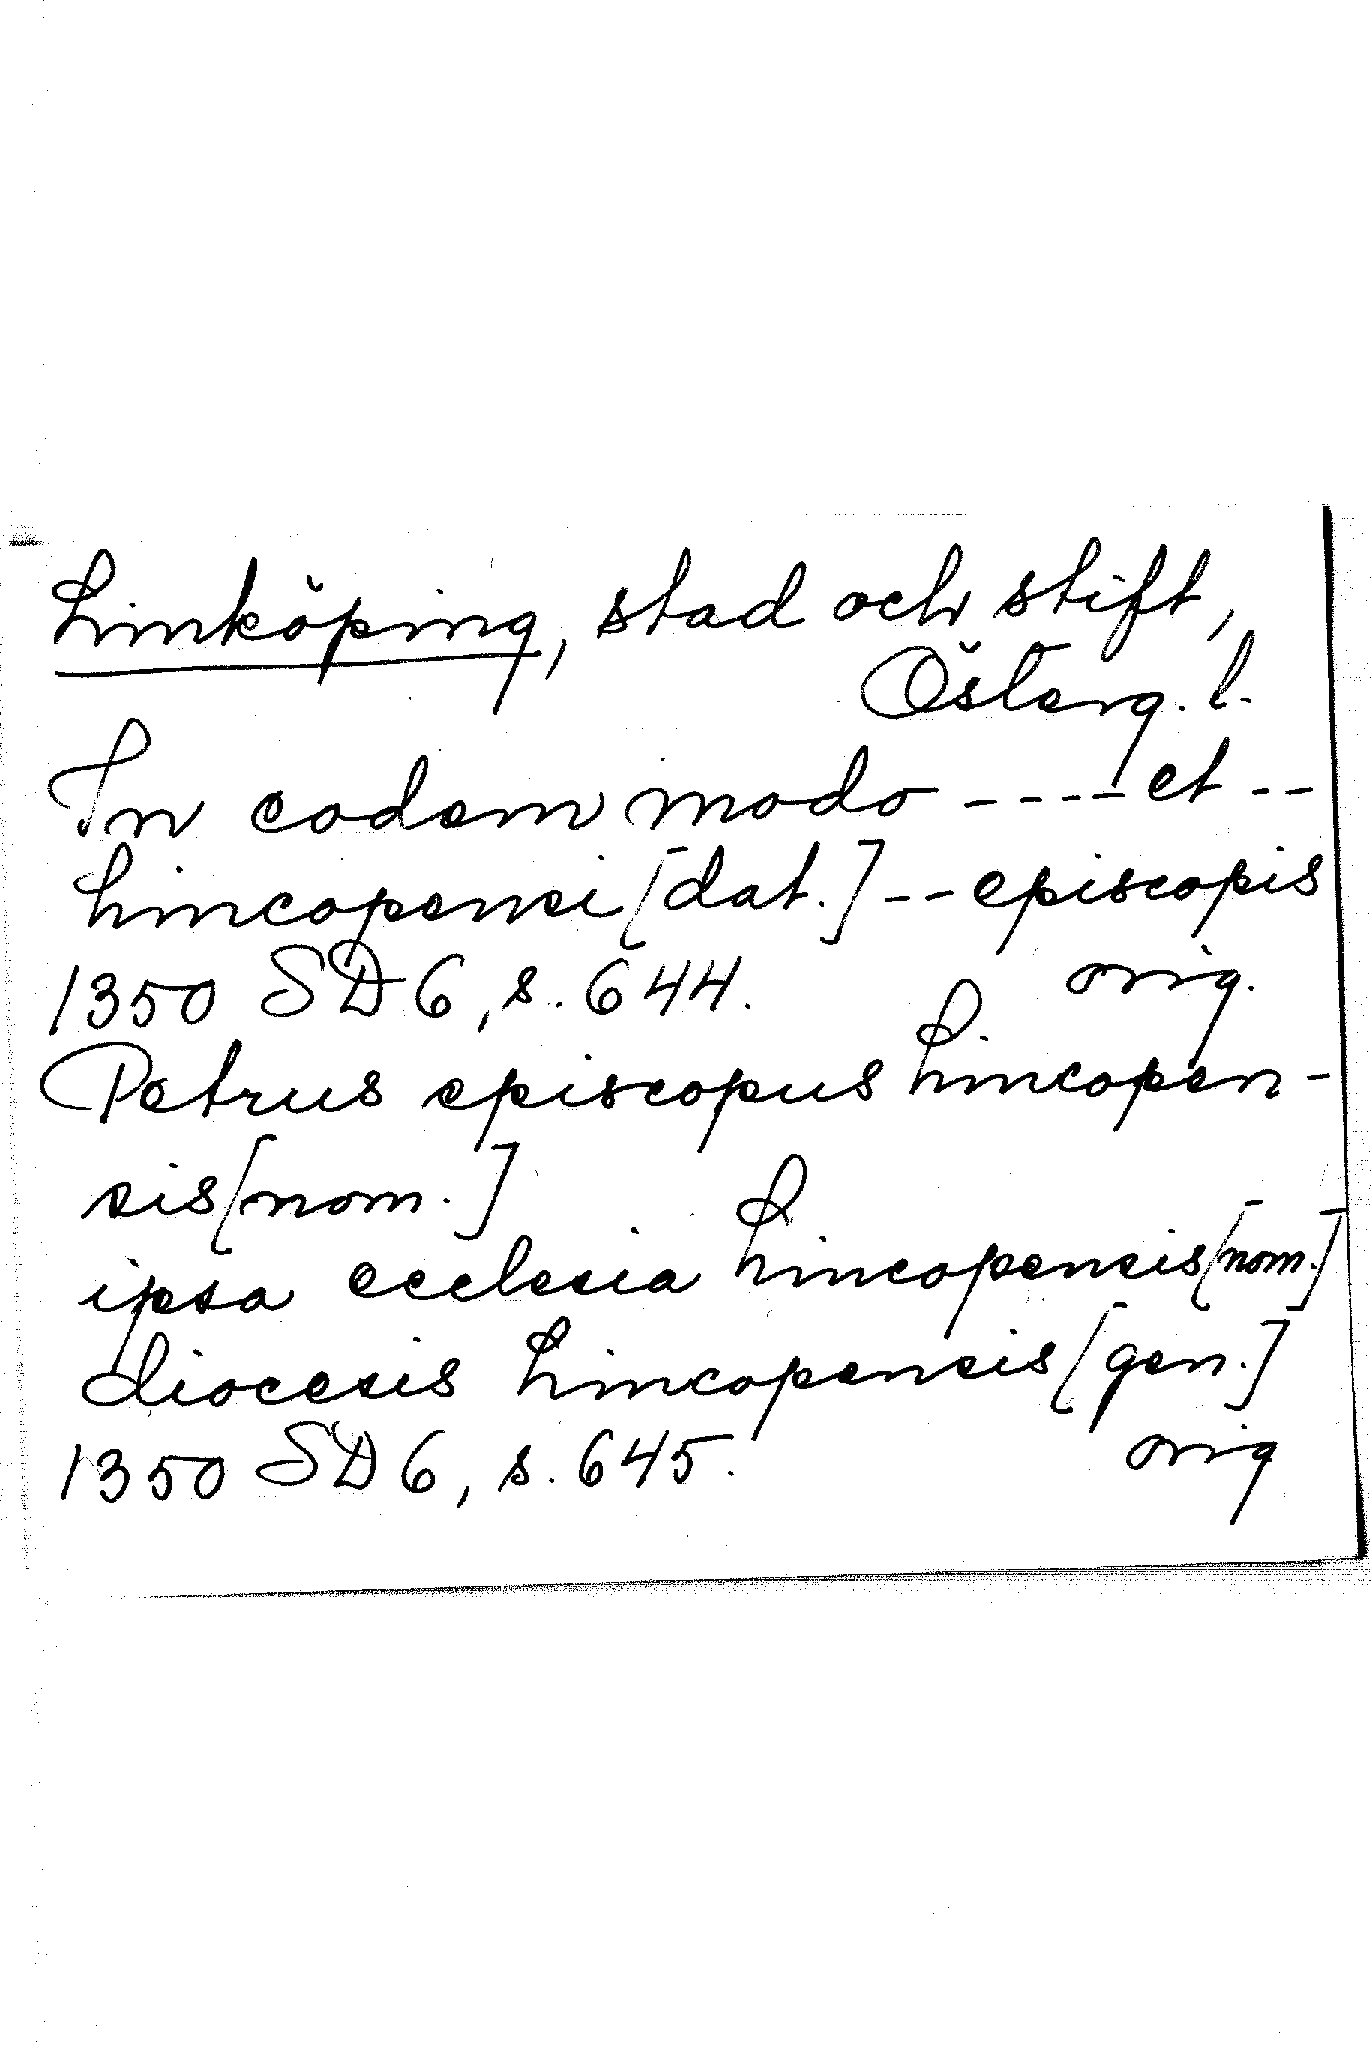 Linköping, stad och stift,
Österg. l.
In eodem modo ---- et --
Lincopensi [dat.] -- episcopis
1350 SD 6, s. 644. orig.
Petrus episcopus Lincopen-
sis [nom.]
ipsa ecclesia Lincopensis [nom.]
diocesis Lincopensis [gen.]
1350 SD 6, s. 645. orig